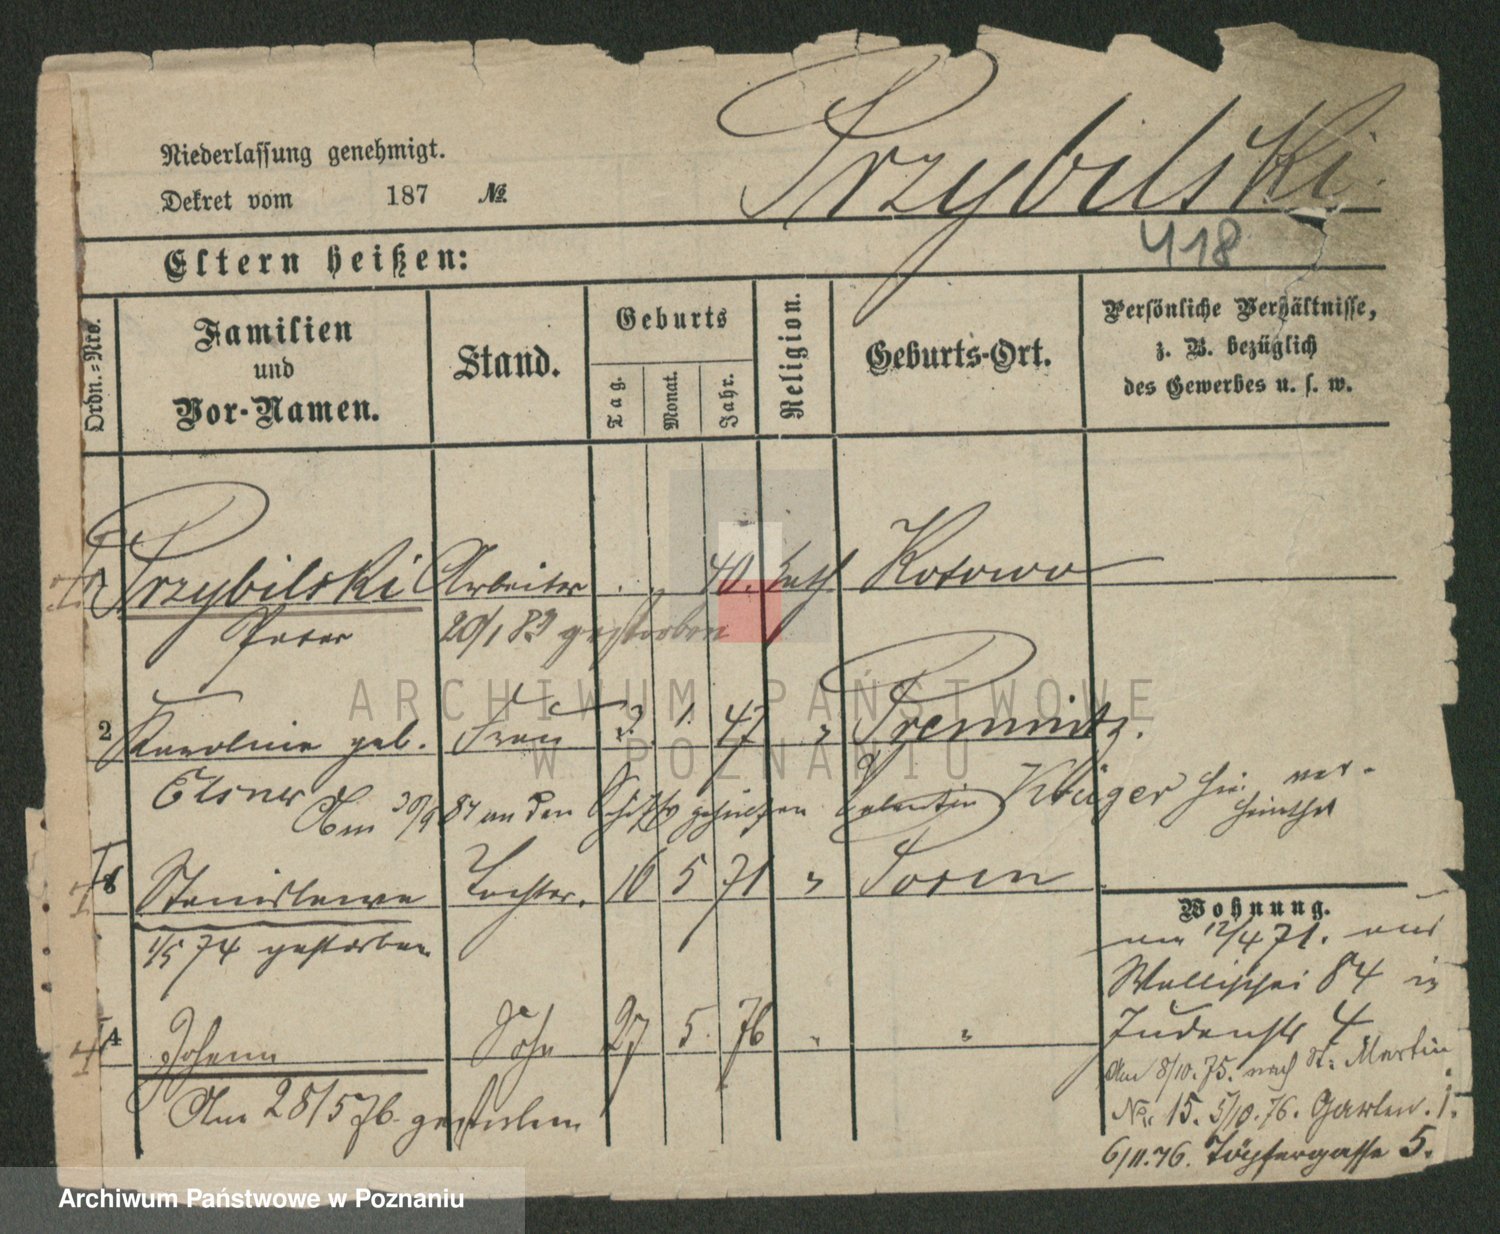 Przybilski.
Niederlassung genehmigt.
Dekret vom 187 №
418
Eltern heißen:
Ordn.-Nro.
Familien
und
Vor-Namen.
Stand.
Geburts
Tag.
Monat.
Jahr.
Religion.
Geburts-Ort.
Persönliche Verhältnisse,
z. B. bezüglich
des Gewerbes u. s. w.
Przybilski Arbeiter . „ 40. kath Kotowo
Peter 20/1 83 gestorben
2 Karoline geb. Frau 2. 1. 47 „ Premnitz.
Elsner Am 30/9 84 an den Schiffsgehülfen Valentin Krüger hier ver-
heirathet
Stanislawa Tochter. 16 5 71 „ Posen
1/5 74 gestorben
4 Johann Sohn 27 5. 76 „ „
Am 28/5 76 gestorben
Wohnung.
am 12/4 71. aus
Wallischei 84 in
Judenstr 4
Am 8/10. 75. nach St: Martin
No. 15. 5/10. 76. Garten. 1.
6/11. 76. Töpfergasse 5.
ARCHIWUM PAŃSTWOWE
W POZNANIU
Archiwum Państwowe w Poznaniu